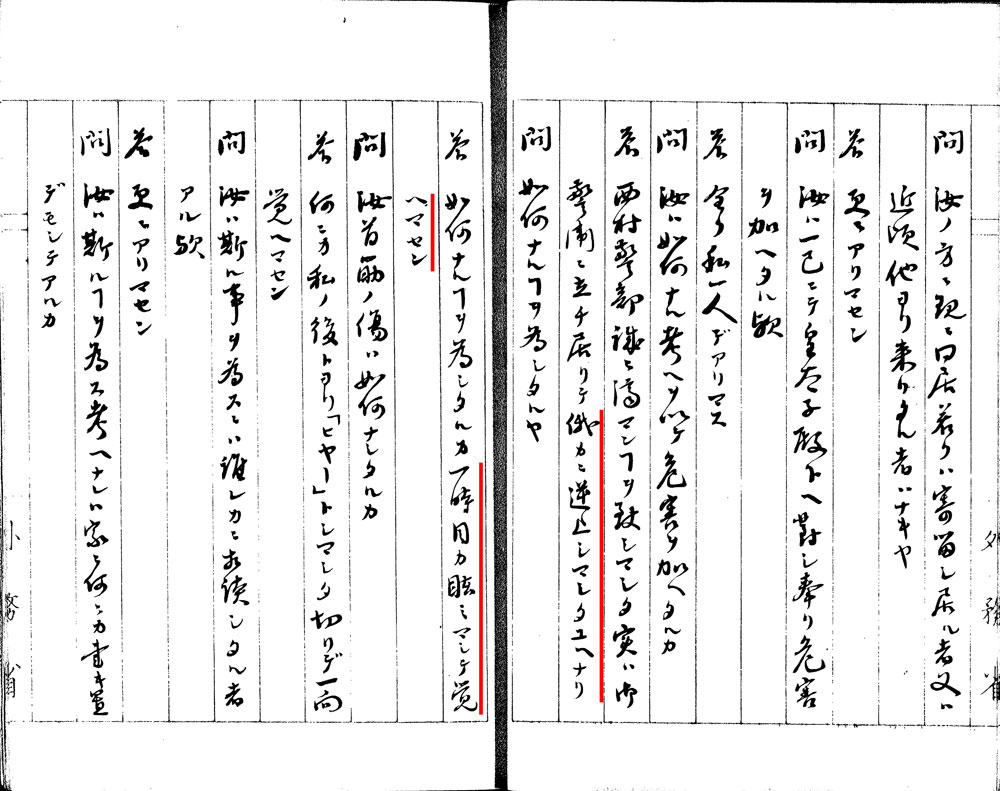 問 汝ノ方ニ現ニ同居若クハ寄留シ居ル者又ハ
近頃他ヨリ来リタル者ハナキヤ
答 更ニアリマセン
問 汝ハ一己ニテ皇太子殿下ヘ對シ奉リ危害
ヲ加ヘタル歟
答 全ク私一人デアリマス
問 汝ハ如何ナル考ヘヲ以テ危害ヲ加ヘタルカ
答 西村警部誠ニ済マンヿヲ致シマシタ実ハ御
警衛ニ立チ居リテ俄カニ逆上シマシタユヘナリ
問 如何ナルヿヲ為シタルヤ
答 如何ナルヿヲ為シタルカ一時目カ眩ミマシテ覚
ヘマセン
問 汝首筋ノ傷ハ如何ナシタルカ
答 何ニカ私ノ後トヨリ「ヒヤー」トシマシタ切リデ一向
覚ヘマセン
問 汝ハ斯ル事ヲ為スニハ誰レカニ相談シタル者
アル歟
答 更ニアリマセン
問 汝ハ斯ルヿヲ為ス考ヘナレハ家ニ何ニカ書キ置
デモシテアルカ
外務省